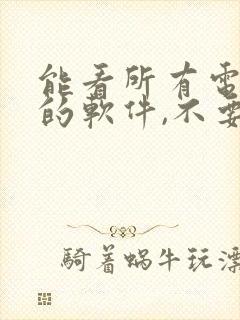 能看所有电
的軟件,不要
騎着蝸牛玩漂